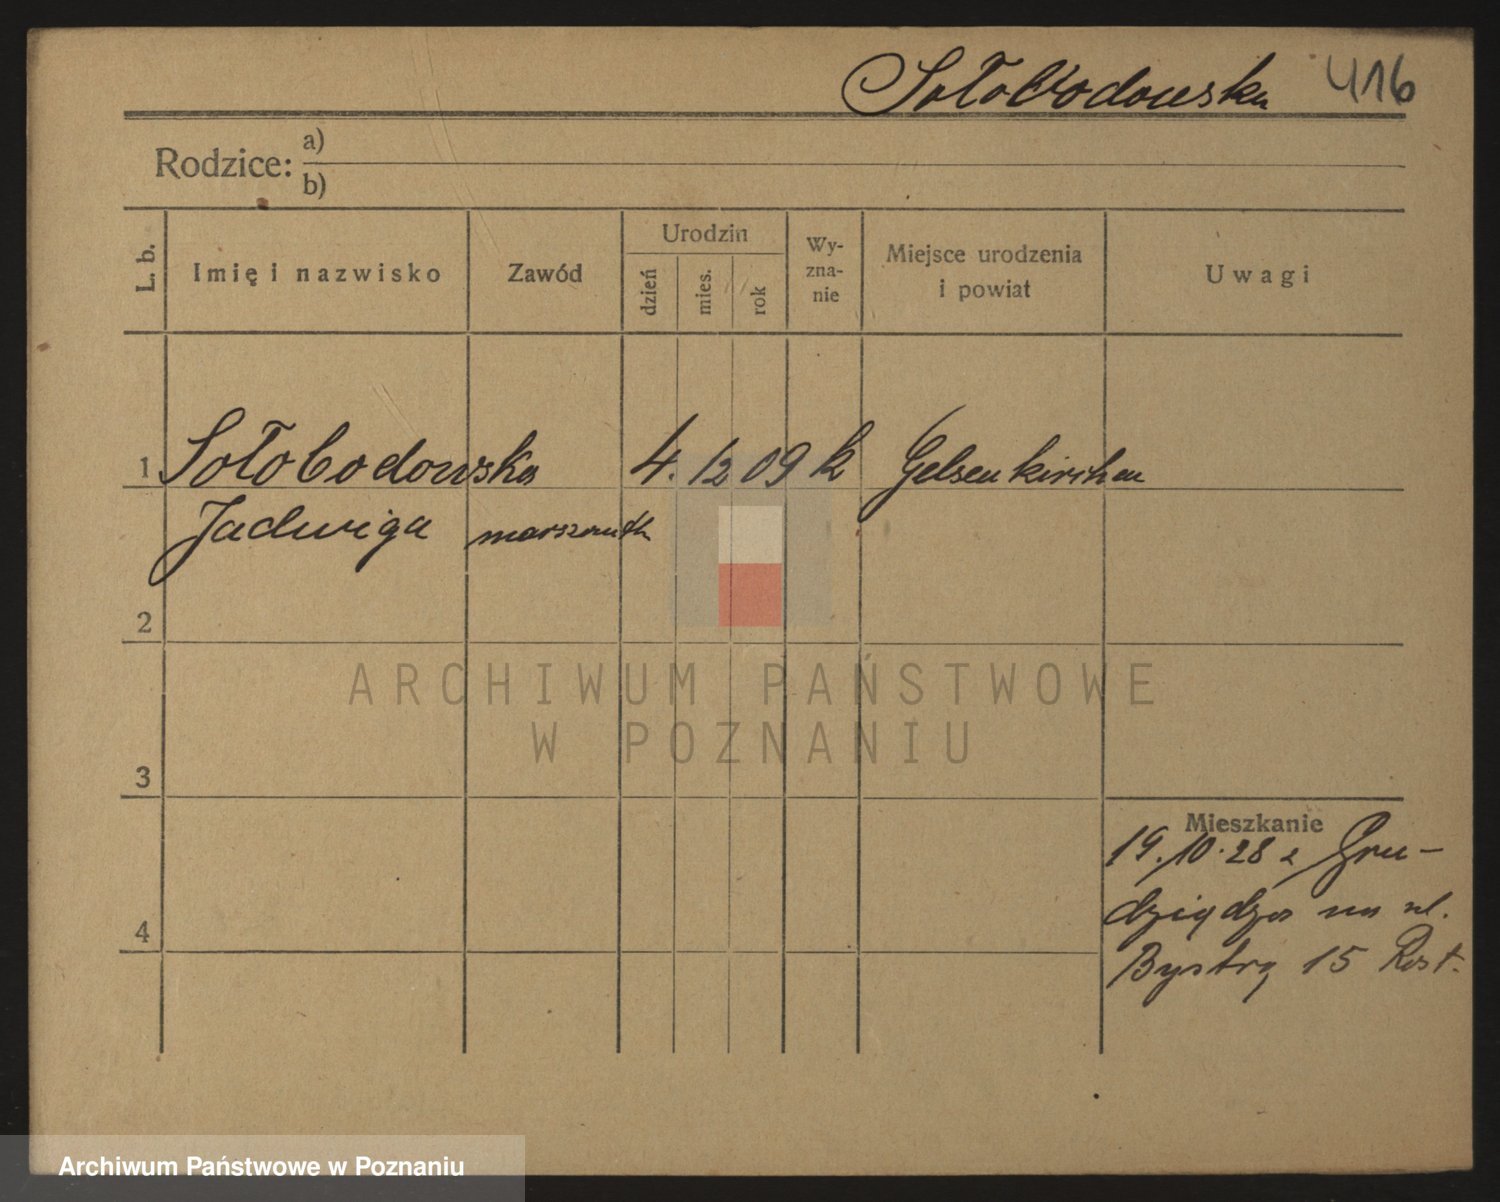 Sołobodowska 416
Rodzice: a)
b)
L. b. Imię i nazwisko Zawód Urodzin dzień mies. rok Wy-zna-nie Miejsce urodzenia i powiat Uwagi
1 Sołobodowska 4. 12 09 k Gelsenkirchen
Jadwiga
2
3
4
Mieszkanie
19.10.28 z Gru-
dziądza na ul.
Bystrą 15 Rest.
ARCHIWUM PAŃSTWOWE
W POZNANIU
Archiwum Państwowe w Poznaniu